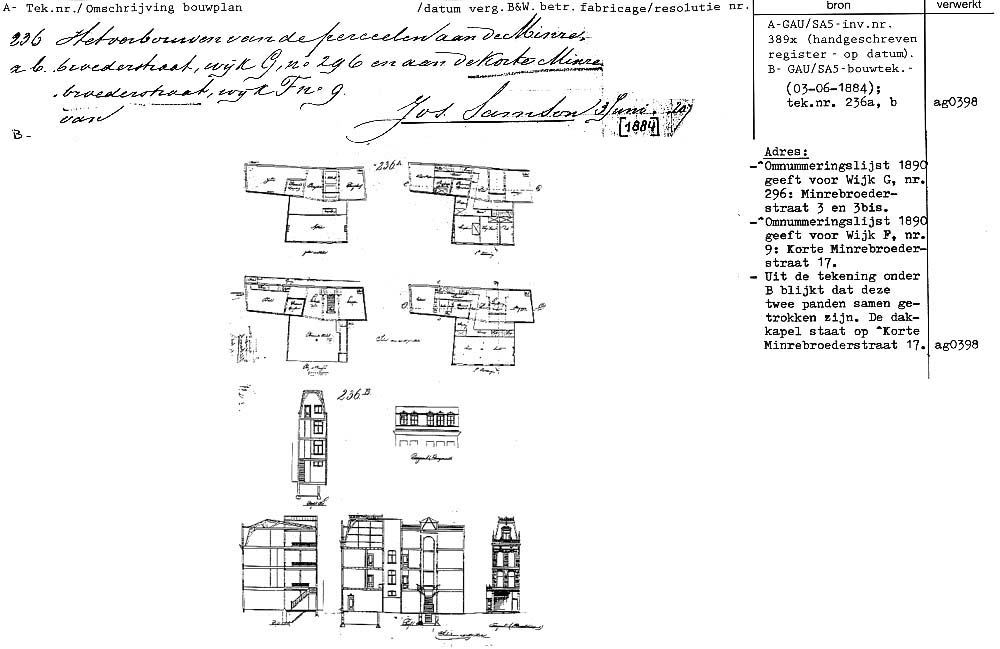 A- Tek.nr./Omschrijving bouwplan /datum verg.B&W.betr.fabricage/resolutie nr. bron verwerkt
236 Het verbouwen van de perceelen aan de Minre-
a b. broederstraat, wijk G, no 296 en aan de Korte Minre
broederstraat, wijk F no 9.
van Jos. Samson 3 Juni.
[1884]
B-
A-GAU/SA5-inv.nr.
389x (handgeschreven
register - op datum).
B- GAU/SA5-bouwtek.-
(03-06-1884);
tek.nr. 236a, b ag0398
Adres:
-^Omnummeringslijst 1890
geeft voor Wijk G, nr.
296: Minrebroeder-
straat 3 en 3bis.
-^Omnummeringslijst 1890
geeft voor Wijk F, nr.
9: Korte Minrebroeder-
straat 17.
- Uit de tekening onder
B blijkt dat deze
twee panden samen ge-
trokken zijn. De dak-
kapel staat op ^Korte
Minrebroederstraat 17. ag0398
236A
236.B.